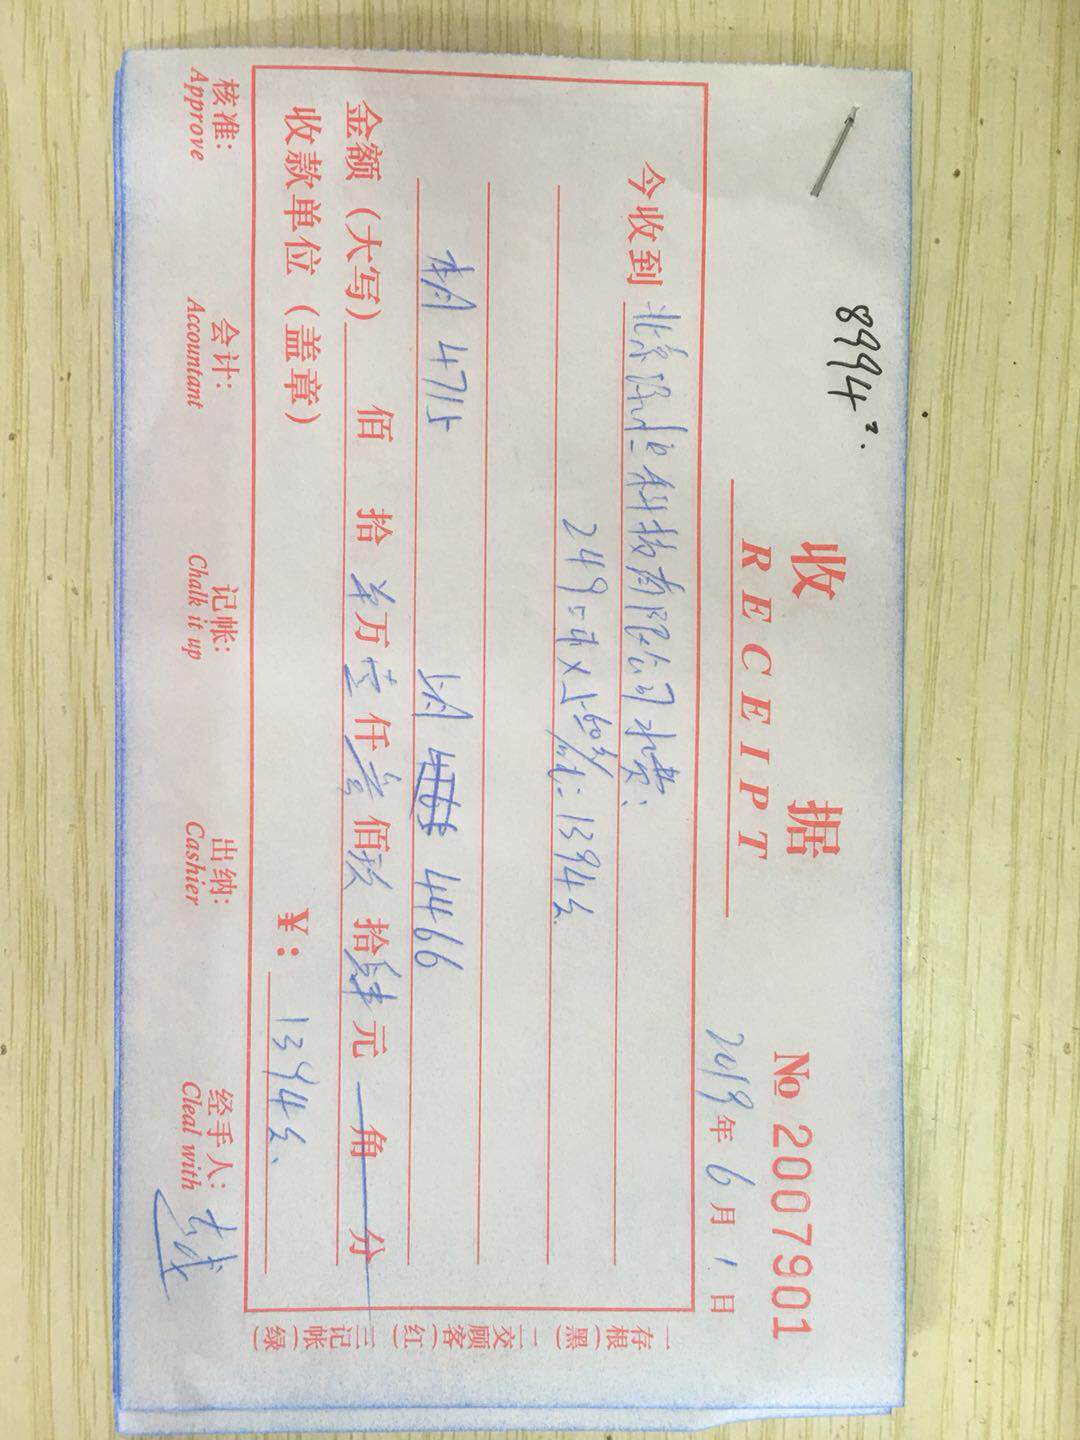 8994.²
收 据
RECEIPT
No 2007901
2019年6月1日
今收到 北京 科技有限公司水费:
249 × 5.60 = 1394元.
本月 4715 上月 4466
金额（大写） 佰 拾 万壹仟叁佰玖拾肆元 一 角 一 分
收款单位（盖章） ¥: 1394元.
核准: 会计: 记帐: 出纳: 经手人:
Approve Accountant Chalk it up Cashier Cleal with
一存根(黑) 二交顾客(红) 三记帐(绿)